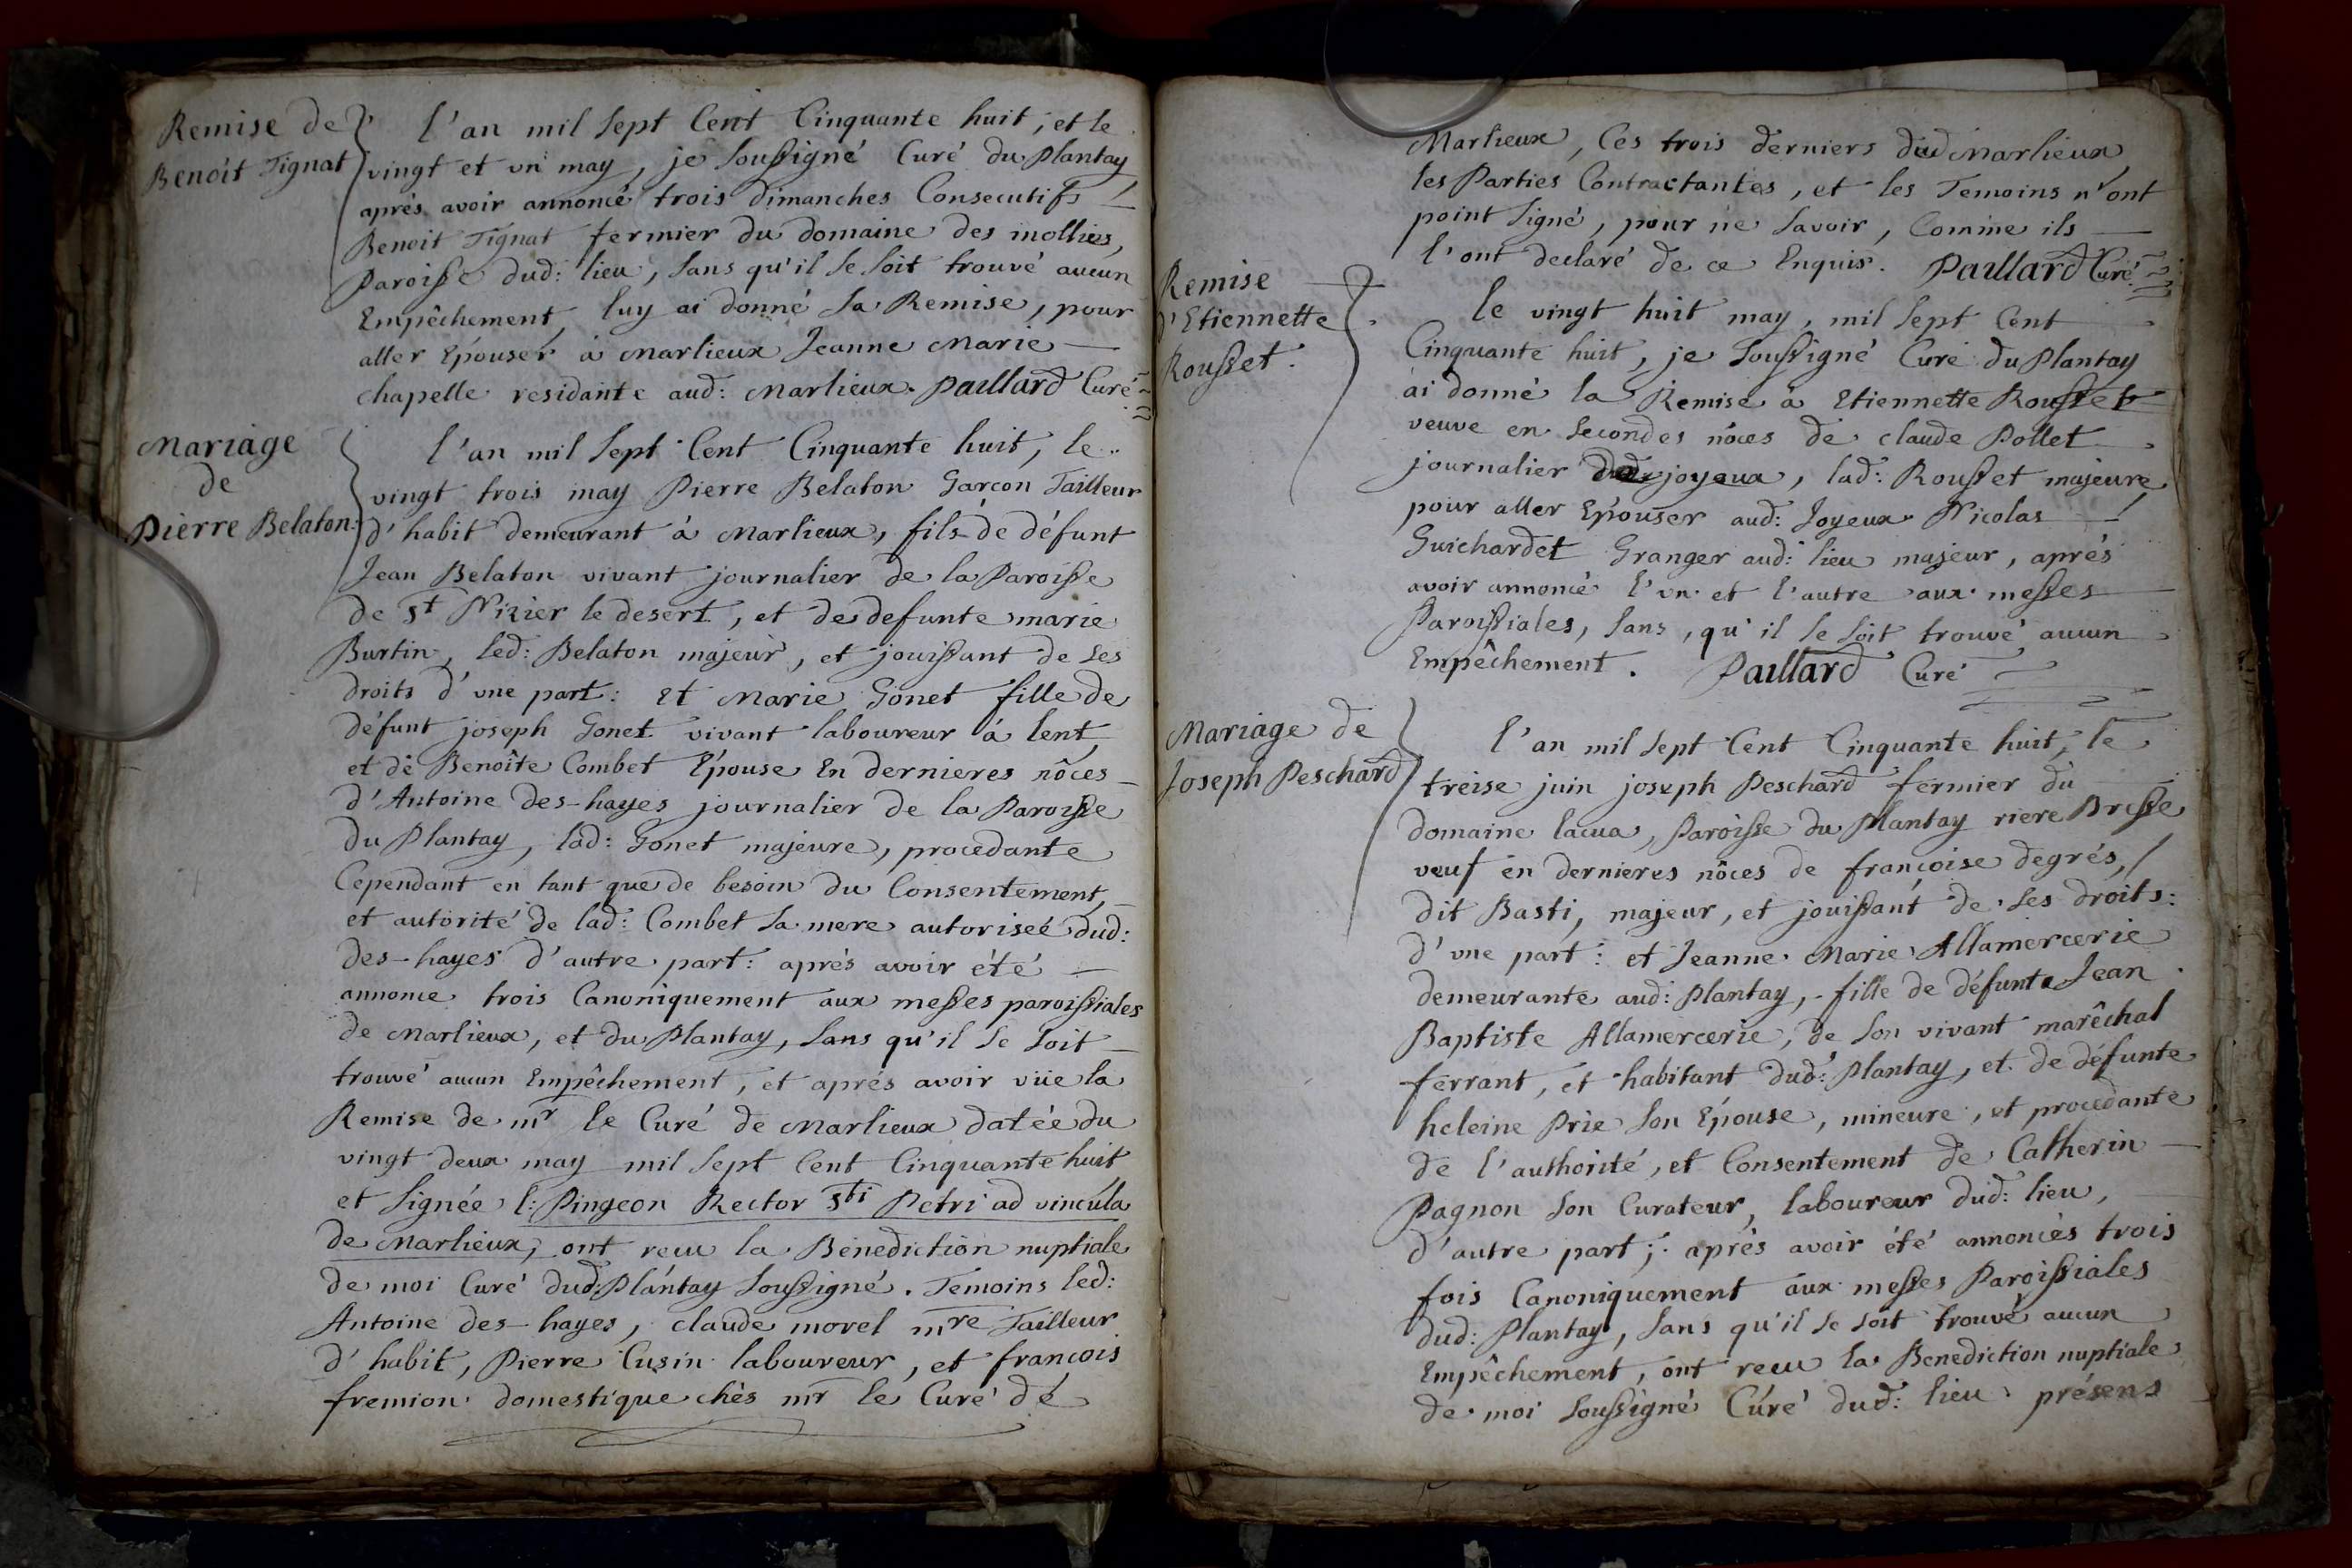 Remise de
Benoit Tignat
l'an mil sept Cent Cinquante huit, et le
vingt et vn may, je soussigné Curé du Plantay
aprés avoir annoncé trois dimanches Consecutifs
Benoit Tignat fermier du domaine des mollies,
Paroisse dud: lieu, sans qu'il se soit trouvé aucun
Empêchement, luy ai donné sa Remise, pour
aller Epouser à Marlieux Jeanne Marie
chapelle residante aud: Marlieux. Paillard Curé
Mariage
de
Pierre Belaton
l'an mil sept Cent Cinquante huit, le
vingt trois may Pierre Belaton Garcon Tailleur
d'habit demeurant à Marlieux, fils de défunt
Jean Belaton vivant journalier de la Paroisse
de St Nizier le desert, et de defunte marie
Burtin, led: Belaton majeur, et jouissant de ses
droits d'vne part: et Marie Gonet fille de
défunt joseph Gonet vivant laboureur à lent
et de Benoîte Combet Epouse En dernieres nôces
d'Antoine des-hayes journalier de la Paroisse
du Plantay, lad: Gonet majeure, procedante
Cependant en tant que de besoin du Consentement,
et autorité de lad: Combet sa mere autorisée dud:
des-hayes d'autre part: aprés avoir été
annoncé trois Canoniquement aux messes paroissiales
de Marlieux, et du Plantay, sans qu'il se soit
trouvé aucun Empêchement, et aprés avoir vüe la
Remise de mr le Curé de Marlieux datée du
vingt deux may mil sept Cent Cinquante huit
et signée l: Pingeon Rector Sti Petri ad vincula
de Marlieux, ont recu la Bénediction nuptiale
de moi Curé dud: Plantay soussigné. Temoins led:
Antoine des-hayes, claude morel mre Tailleur
d'habit, Pierre Cusin laboureur, et francois
fremion domestique chés mr le Curé de
Marlieux, Ces trois derniers dud Marlieux
les Parties Contractantes, et les Temoins n'ont
point signé, pour ne savoir, Comme ils
l'ont declaré de ce Enquis. Paillard Curé
Remise
d'Etiennette
Rousset.
le vingt huit may, mil sept Cent
Cinquante huit, je soussigné Curé du Plantay
ai donné la Remise à Etiennette Rousset
veuve en secondes nôces de claude Pollet
journalier de joyeux, lad: Rousset majeure
pour aller Epouser aud: Joyeux Nicolas
Guichardet Granger aud: lieu majeur, aprés
avoir annoncé l'vn et l'autre aux messes
Paroissiales, sans, qu'il se soit trouvé aucun
Empêchement. Paillard Curé
Mariage de
Joseph Peschard
l'an mil sept Cent Cinquante huit, le
treise juin joseph Peschard fermier du
domaine lacua, Paroisse du Plantay riere Bresse
veuf en dernieres nôces de françoise degrés,
dit Basti, majeur, et jouissant de ses droits:
d'vne part: et Jeanne Marie Allamercerie
demeurante aud: Plantay, fille de défunt Jean
Baptiste Allamercerie, de son vivant marêchal
ferrant, et habitant dud: Plantay, et de défunte
heleine Prie son Epouse, mineure, et procedante
de l'authorité, et Consentement de Catherin
Pagnon son Curateur, laboureur dud: lieu,
d'autre part; aprés avoir été annoncés trois
fois Canoniquement aux messes Paroissiales
dud: Plantay, sans qu'il se soit trouvé aucun
Empêchement, ont recu la Benediction nuptiale
de moi soussigné Curé dud: lieu présens